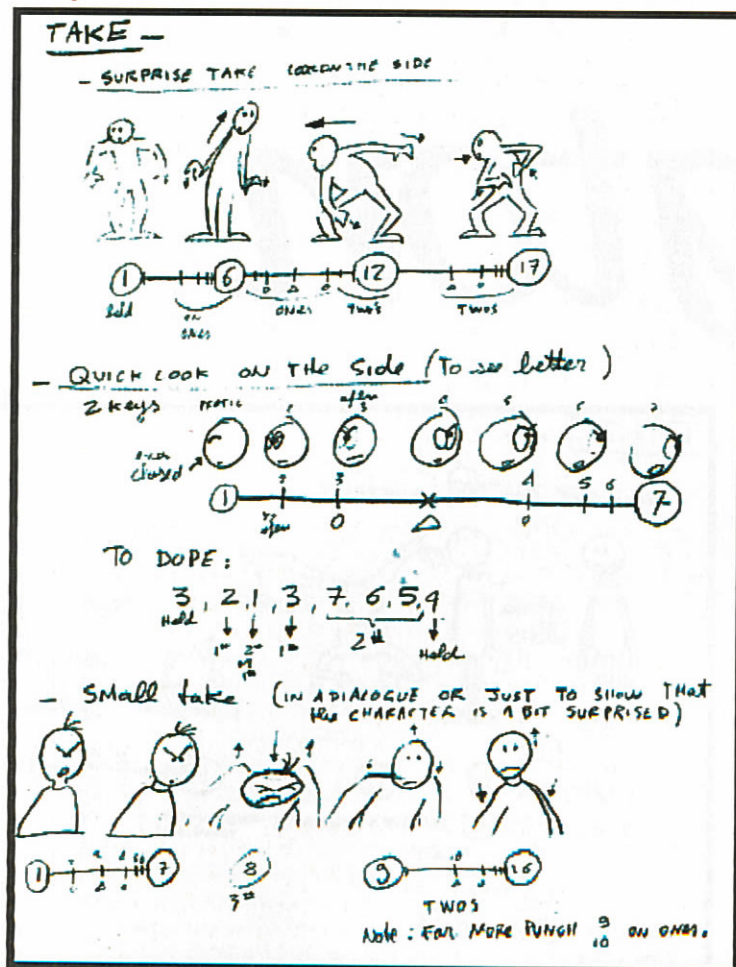 TAKE -
- SURPRISE TAKE LOOK ON THE SIDE
1 6 12 17
hold ON ONES ONES TWO'S TWOS
- QUICK LOOK ON THE SIDE (To see better)
2 Keys
closed
3
1 7
4 5 6
open
TO DOPE:
3, 2, 1, 3, 7 6, 5, 4
Hold
Hold
- SMALL take (IN A DIALOGUE OR JUST TO SHOW THAT
the CHARACTER IS A BIT SURPRISED)
1 7 8 9 16
TWOS
Note: FOR MORE PUNCH 9 10 ON ONES.